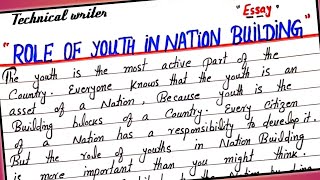 Technical writer
"Essay"
"ROLE OF YOUTH IN NATION BUILDING"
The youth is the most active part of the
Country. Everyone knows that the youth is an
asset of a Nation, Because youth is the
Building blocks of a Country. Every Citizen
of a Nation has a responsibility to develop it.
But the role of youths in Nation Building
is more important than you might think.